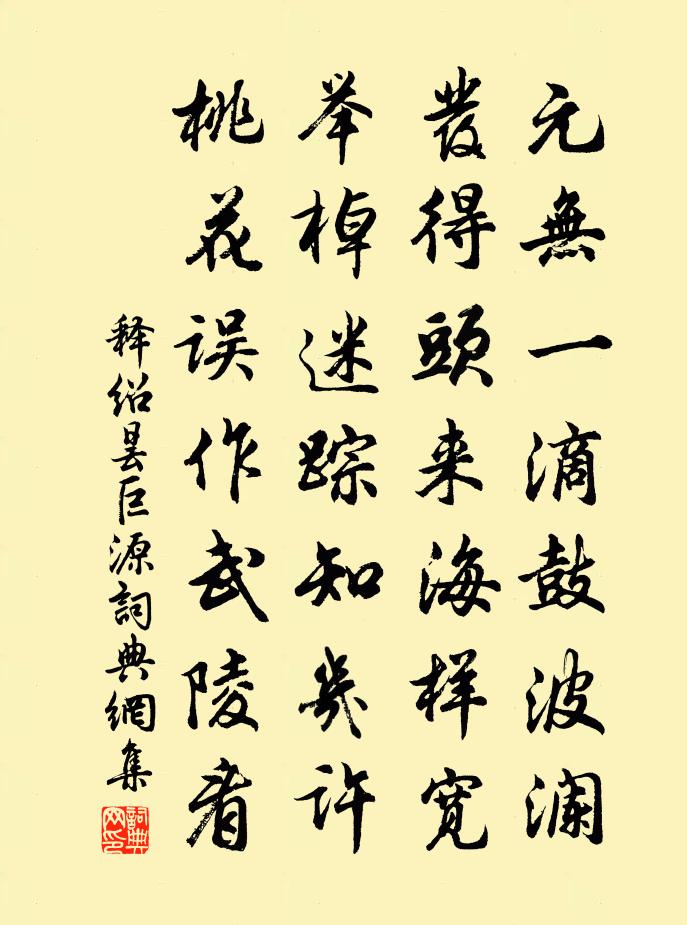 元無一滴鼓波澜
發得頭来海样寛
举棹迷踪知幾许
桃花误作武陵看
释绍昙巨源詞典網集
詞典网印